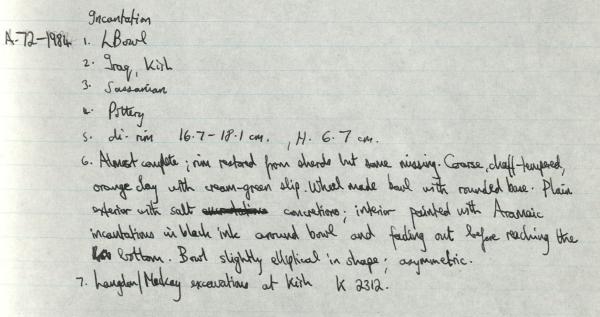 Incantation
A-72-1984 1. Bowl
2. Iraq, Kish
3. Sassanian
4. Pottery
5. di. rim 16.7-18.1 cm. , H. 6.7 cm.
6. Almost complete; rim restored from sherds but some missing. Coarse, chaff-tempered,
orange clay with cream-green slip. Wheel made bowl with rounded base. Plain
exterior with salt concretions; interior painted with Aramaic
incantations in black ink around bowl and fading out before reaching the
bottom. Bowl slightly elliptical in shape; asymmetric.
7. Langdon/Mackay excavations at Kish K 2312.